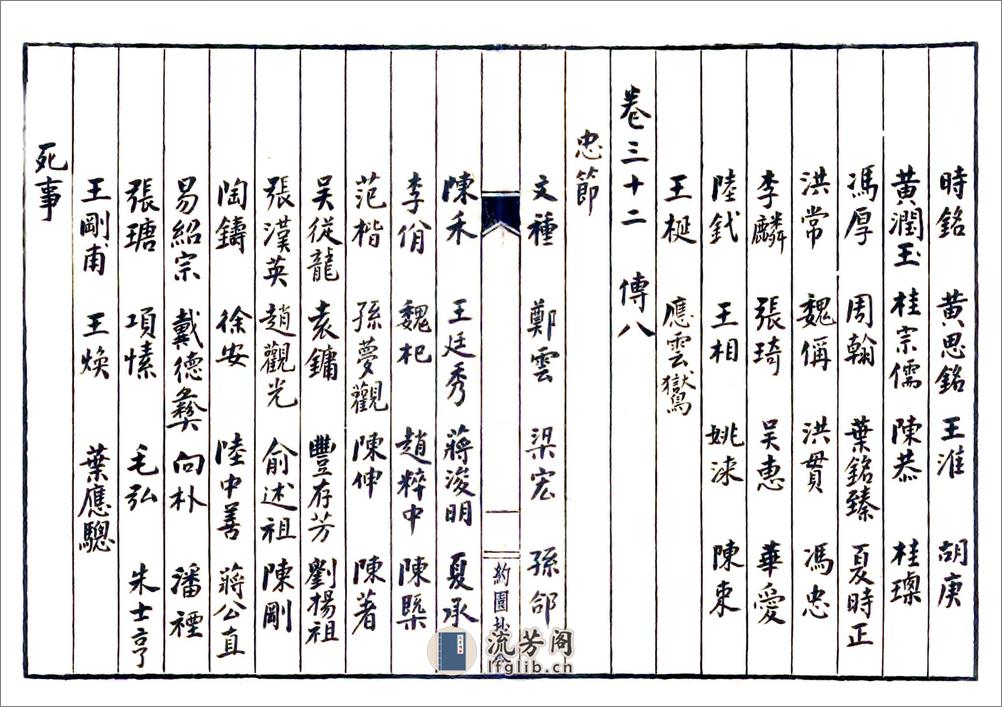 時銘 黃思銘 王淮 胡庚
黃潤玉 桂宗儒 陳恭 桂璨
馮厚 周翰 葉銘臻 夏時正
洪常 魏偁 洪貫 馮忠
李麟 張琦 吴惠 華愛
陸釴 王相 姚淶 陳束
王梃 應雲鸑
卷三十二 傳八
忠節
文種 鄭雲 梁宏 孫郃
約園抄
陳禾 王廷秀 蔣浚明 夏承
李佾 魏杞 趙粹中 陳槩
范楷 孫夢觀 陳伸 陳著
吴從龍 袁鏞 豐存芳 劉揚祖
張漢英 趙觀光 俞述祖 陳剛
陶鑄 徐安 陸中善 蔣公直
易紹宗 戴德彝 向朴 潘禋
張瑭 項愫 毛弘 朱士亨
王剛甫 王煥 葉應驄
死事
流芳阁
lfglib.cn